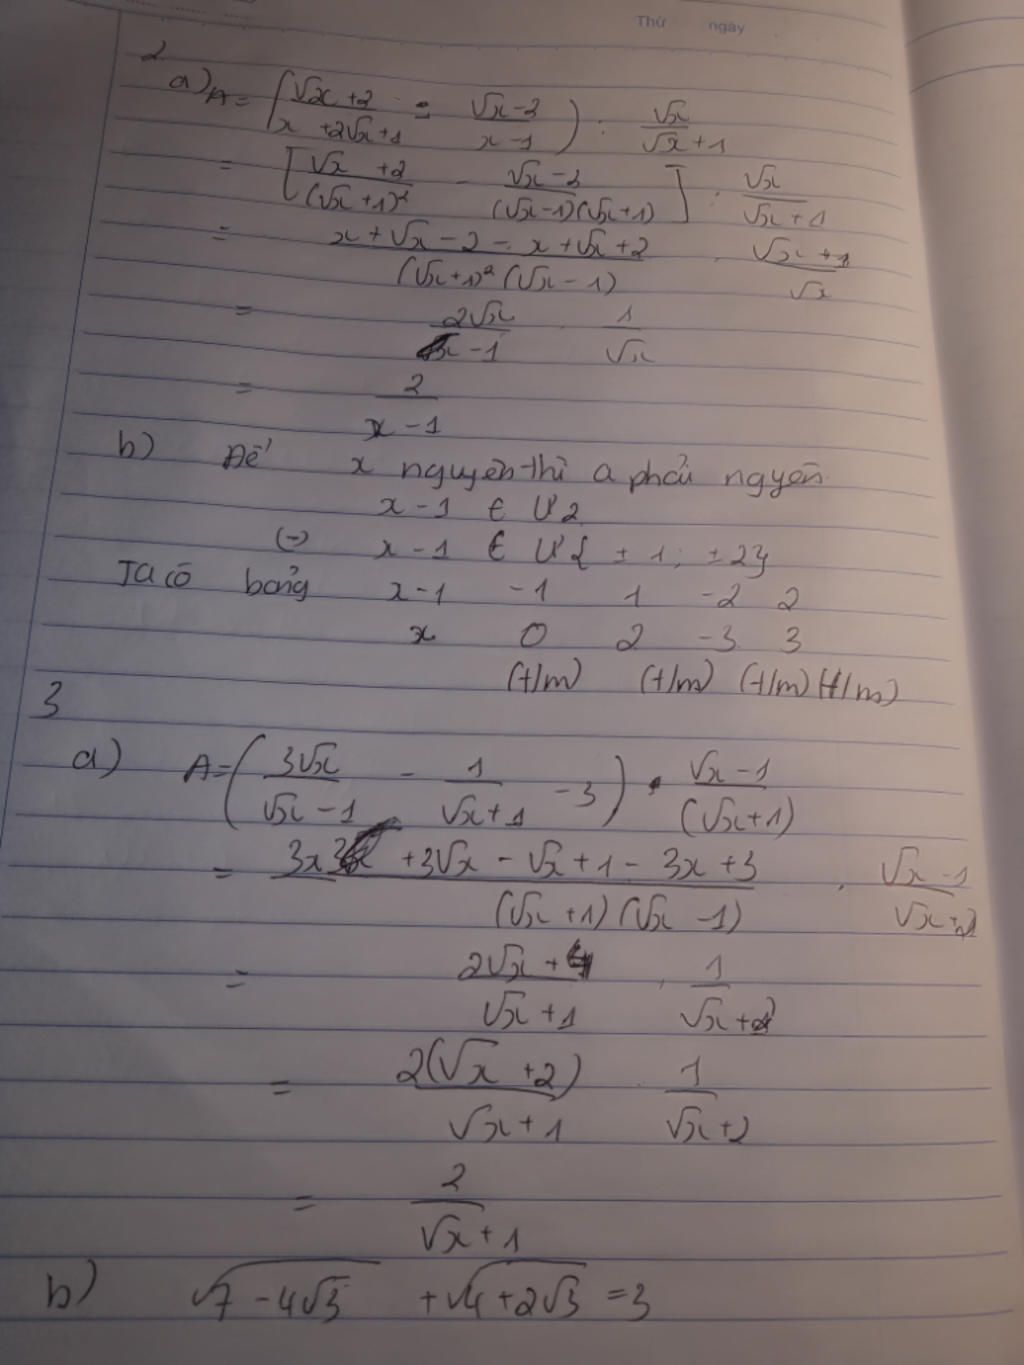 Thứ ngày
2
a) A = ( (√x + 2)/(x + 2√x + 1) - (√x - 2)/(x - 1) ) : √x/(√x + 1)
= [ (√x + 2)/(√x + 1)² - (√x - 2)/((√x - 1)(√x + 1)) ] : √x/(√x + 1)
= (x + √x - 2 - x + √x + 2)/((√x + 1)² (√x - 1)) . (√x + 1)/√x
= 2√x/(x - 1) . 1/√x
= 2/(x - 1)
b) Để x nguyên thì a phải ngyên
x - 1 ∈ Ư2
(=) x - 1 ∈ Ư{ ± 1; ± 2}
Ta có bảng x-1 -1 1 -2 2
x 0 2 -3 3
(t/m) (t/m) (t/m) (t/m)
3
a) A = ( 3√x/(√x - 1) - 1/(√x + 1) - 3 ) . (√x - 1)/(√x + 1)
= (3x + 3√x - √x + 1 - 3x + 3)/((√x + 1)(√x - 1)) . (√x - 1)/(√x + 2)
= (2√x + 4)/(√x + 1) . 1/(√x + 2)
= 2(√x + 2)/(√x + 1) 1/(√x + 2)
= 2/(√x + 1)
b) √(7 - 4√3) + √(4 + 2√3) = 3